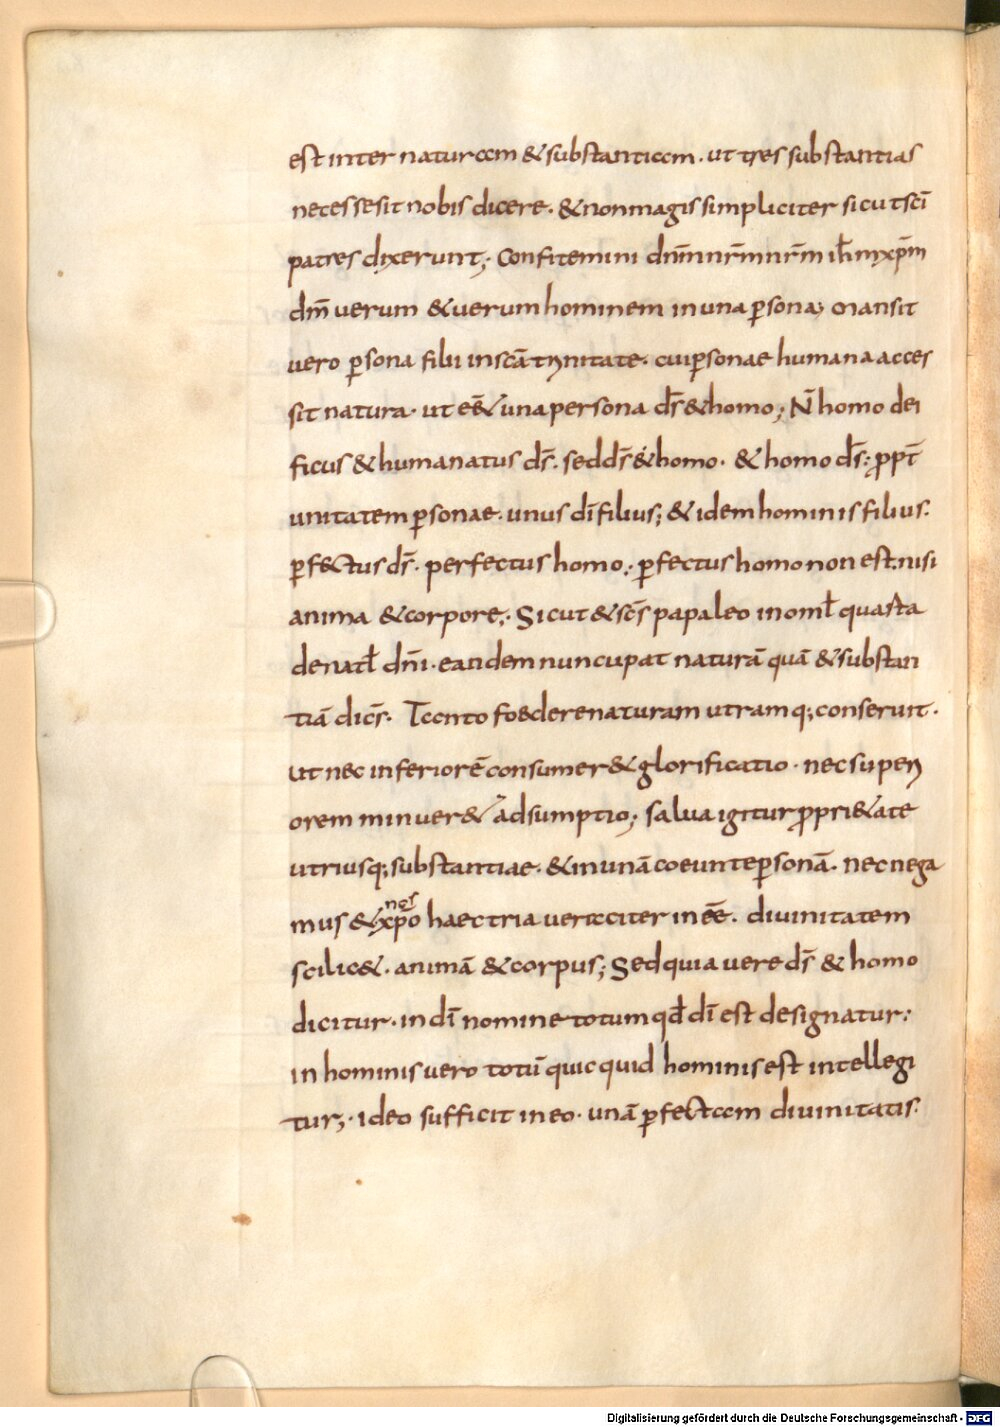 est inter naturam & substantiam. ut tres substantias
necesse sit nobis dicere. & non magis simpliciter sicut sc̄i
patres dixerunt;· Confitemini dn̄m nr̄m nr̄m ih̄m xp̄m
dm̄ verum & verum hominem in una ꝑsona; Mansit
vero ꝑsona filii in sc̄a trinitate. cui ꝑsonae humana acces
sit natura. ut eēt una persona ds̄ & homo; N̄ homo dei
ficus & humanatus ds̄. sed ds̄ & homo. & homo ds̄: ꝓpt̄
unitatem ꝑsonae. unus dī filius; & idem hominis filius.
ꝑfectus ds̄. perfectus homo; ꝑfectus homo non est. nisi
anima & corpore;· Sicut & scs̄ papa leo in omł quasta
de natł dn̄i. eandem nuncupat naturā quā & substan
tiā dics̄. Tanto foedere naturam utramq; conseruit.
ut nec inferiorē consumer& glorificatio. nec superi
orem minuer& adsumptio; salva igitur ꝓpri&ate
utriusq; substantiae. & in unā coeunte ꝑsonā. nec nega
nos
mus & xp̄o haec tria veraciter ineēe. divinitatem
scilic&. animā & corpus; Sed quia vere ds̄ & homo
dicitur. in dī nomine totum qđ dī est designatur:
in hominis vero totū quicquid hominis est intellegi
tur;· ideo sufficit in eo. unā ꝑfectam divinitatis.
Digitalisierung gefördert durch die Deutsche Forschungsgemeinschaft - DFG